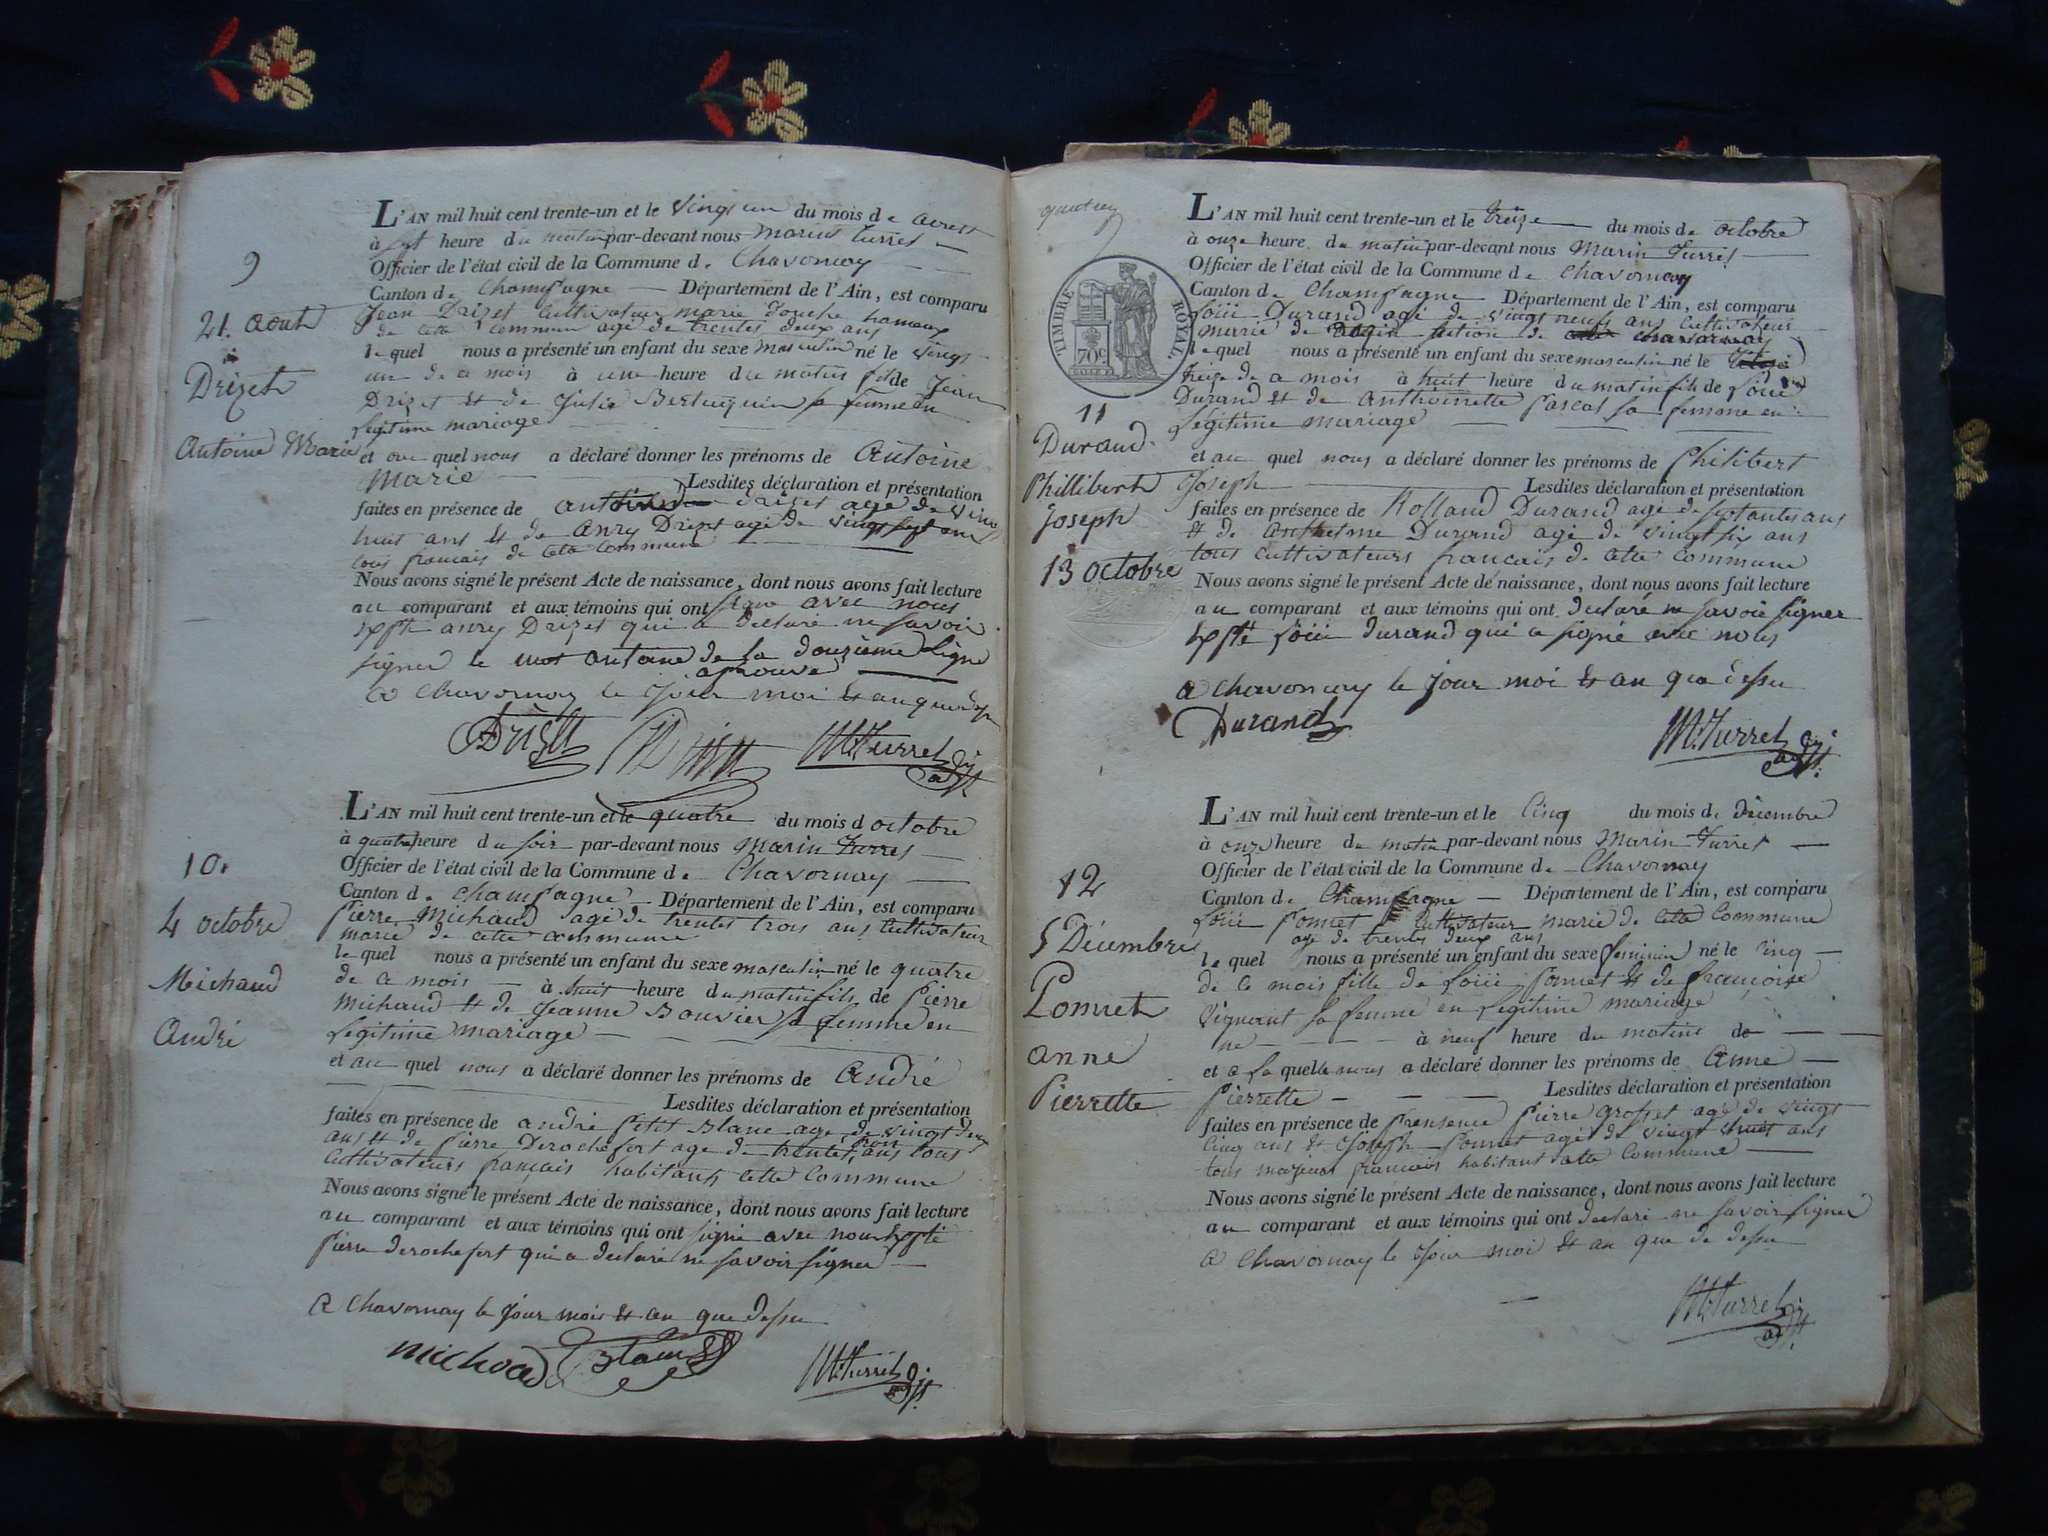 9
21. aout
Drizet
Antoine Marie
L'AN mil huit cent trente-un et le vingt un du mois de aoust
à sept heure du matin par-devant nous marin turret
Officier de l'état civil de la Commune d. Chavornay
Canton de Champagne Département de l'Ain, est comparu
Jean Drizet Cultivateur marié hameux
de cette Commune agé de trentes deux ans
lequel nous a présenté un enfant du sexe masculin né le vingt
un de ce mois à une heure du matin fils de Jean
Drizet et de Julie sa femme en
legitime mariage
et au quel nous a déclaré donner les prénoms de Antoine
Marie Lesdites déclaration et présentation
faites en présence de Drizet agé de vingt
huit ans et de anry Drizet agé de vingt sept ans
tous francais de cette Commune
Nous avons signé le présent Acte de naissance, dont nous avons fait lecture
au comparant et aux témoins qui ont signé avec nous
expté anry Drizet qui a declaré ne savoir
signer le mot antoine de la douzième ligne
aprouvé
a Chavornay le jour moi et an que dessu
Drizet Drizet M. Turret adjt.
10.
4 octobre
Michaud
André
L'AN mil huit cent trente-un et le quatre du mois d octobre
à quatre heure du soir par-devant nous Marin Turret
Officier de l'état civil de la Commune d. Chavornay
Canton d. Champagne Département de l'Ain, est comparu
Pierre Michaud agé de trentes trois ans Cultivateur
marié de cette commune
lequel nous a présenté un enfant du sexe masculin né le quatre
de ce mois à huit heure du matin fils de Pierre
Michaud et de Jeanne Bouvier sa femme en
legitime mariage
et au quel nous a déclaré donner les prénoms de André
Lesdites déclaration et présentation
faites en présence de andré Petit Blanc agé de vingt deux
ans et de Pierre Derochefort agé de trentes trois ans tous
Cultivateurs français habitants cette Commune
Nous avons signé le présent Acte de naissance, dont nous avons fait lecture
au comparant et aux témoins qui ont signé avec nous expté
Pierre derochefort qui a declaré ne savoir signer
a Chavornay le jour mois et an que dessu
Michaud Blanc M. Turret adjt.
TIMBRE ROYAL.
70c
11
Durand
Phillibert
Joseph
13 octobre
L'AN mil huit cent trente-un et le treize du mois de octobre
à onze heure du matin par-devant nous Marin Turret
Officier de l'état civil de la Commune de Chavornay
Canton de Champagne Département de l'Ain, est comparu
Loüii Durand agé de vingt neufs ans Cultivateur
marié de section de Chavornay
lequel nous a présenté un enfant du sexe masculin né le
treize de ce mois à huit heure du matin fils de Loüii
Durand et de Anthoinette Pascal sa femme en
Légitime mariage
et au quel nous a déclaré donner les prénoms de Philibert
Joseph Lesdites déclaration et présentation
faites en présence de Rolland Durand agé de soixantes ans
et de Anthelme Durand agé de vingt six ans
tous Cultivateurs francais de cette Commune
Nous avons signé le présent Acte de naissance, dont nous avons fait lecture
au comparant et aux témoins qui ont declaré ne savoir signer
expté Loüii Durand qui a signé avec nous
a Chavornay le jour moi et an que dessu
Durand M. Turret adjt.
12
5 Décembre
Ponnet
anne
Pierrette
L'AN mil huit cent trente-un et le Cinq du mois d. Décembre
à onze heure du matin par-devant nous Marin Turret
Officier de l'état civil de la Commune de Chavornay
Canton d. Champagne Département de l'Ain, est comparu
Loüii Ponnet Cultivateur marié de cette Commune
agé de trentes deux ans
lequel nous a présenté un enfant du sexe feminin né le cinq
de ce mois fille de Loüii Ponnet et de françoise
Vignant sa femme en legitime mariage
ne à neuf heure du matin de
et a la quelle nous a déclaré donner les prénoms de Anne
Pierrette Lesdites déclaration et présentation
faites en présence de Pierre grosset agé de vingt
Cinq ans et Joseph Ponnet agé de vingt huit ans
tous majeurs francais habitant cette Commune
Nous avons signé le présent Acte de naissance, dont nous avons fait lecture
au comparant et aux témoins qui ont declaré ne savoir signer
a Chavornay le jour moi et an que de dessu
M. Turret adjt.